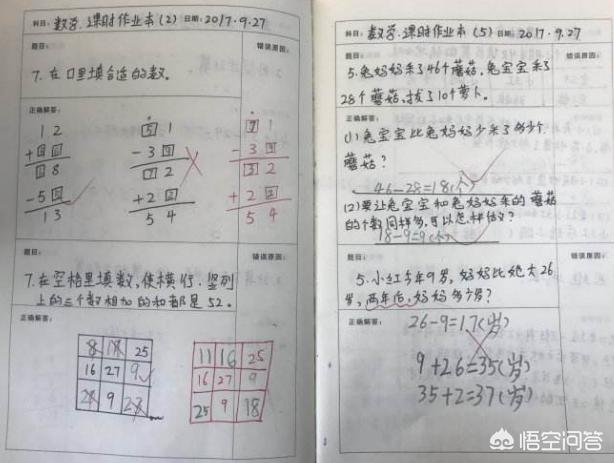 科目: 数学.课时作业本(2) 日期: 2017.9.27
题目:
错误原因:
7. 在口里填合适的数。
正确解答:
1 2
5 1
1
- 3
- 3
8
2
2
- 5
+ 2
+ 2
1 3
5 4
5 4
题目:
错误原因:
7.在空格里填数,使横行.竖列
上的三个数相加的和都是52.
正确解答:
25
11 16 25
16 27 9
16 27 9
9
25 9 18
科目: 数学.课时作业本(5) 日期: 2017.9.27
题目:
错误原因:
5.兔妈妈采了46个蘑菇,兔宝宝采了
28个蘑菇,拔了10个萝卜。
正确解答:
(1)兔宝宝比兔妈妈少采了多少个
蘑菇?
46-28=18(个)
(2)要让兔宝宝和兔妈妈采的蘑菇
的个数同样多,可以怎样做?
18-9=9(个)
题目:
错误原因:
5.小红今年9岁,妈妈比她大26
岁,两年后,妈妈多少岁?
正确解答:
26-9=17(岁)
9+26=35(岁)
35+2=37(岁)
悟空问答